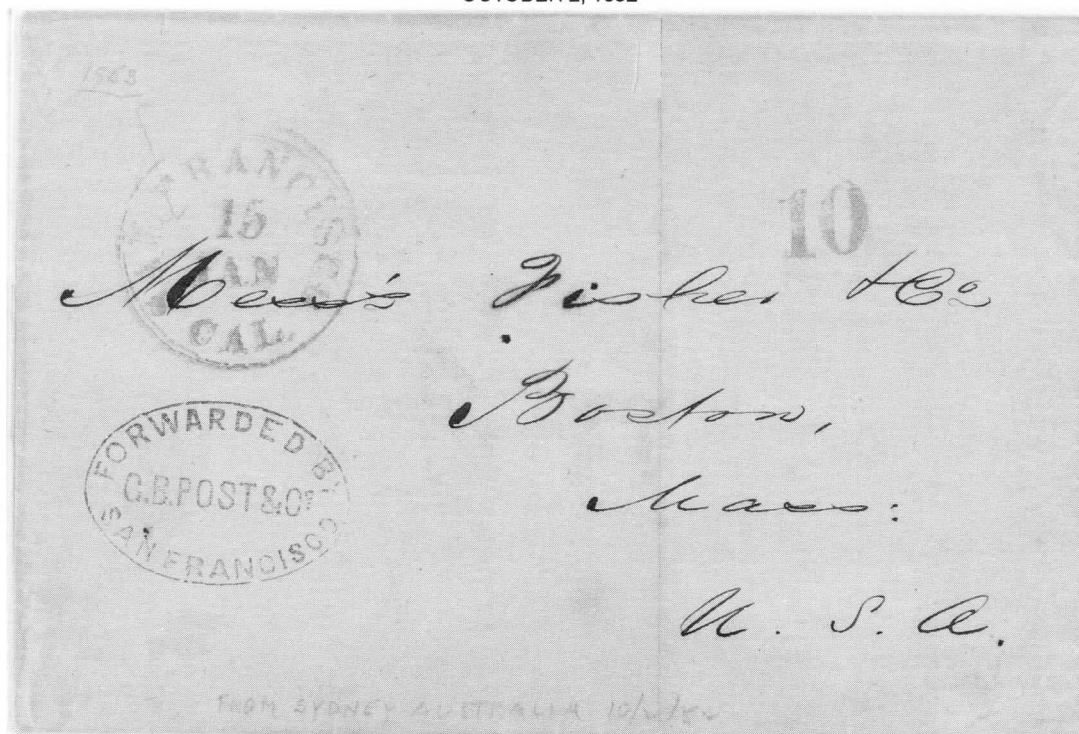 OCTOBER 2, 1852
SAN FRANCISCO
15
JAN
CAL.
10
Mess's Fisher & Co
Boston,
Mass:
U. S. A.
FORWARDED BY
G.B.POST&Co.
SAN FRANCISCO
FROM SYDNEY AUSTRALIA